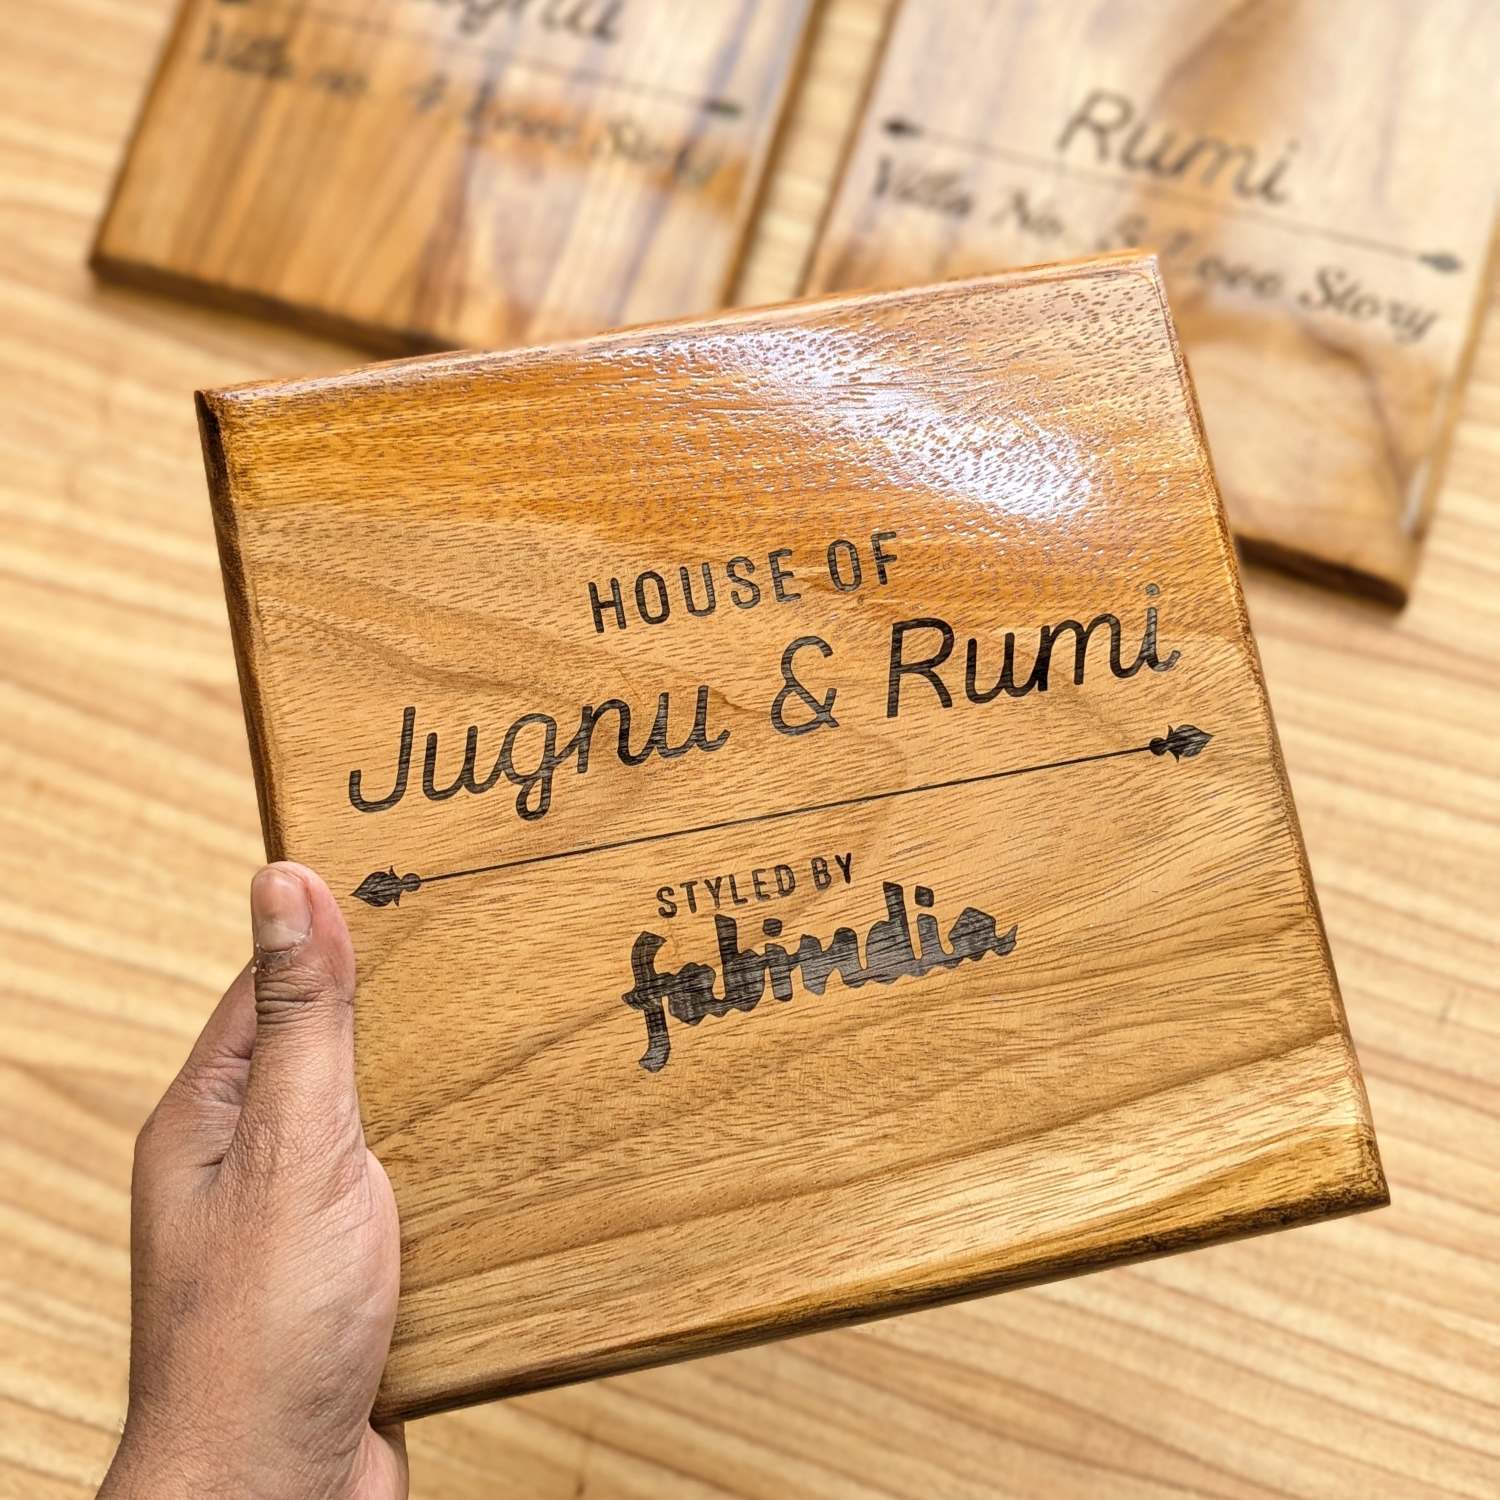 Jugnu
Villa no. 4 Love Story
Rumi
Villa No. Love Story
HOUSE OF
Jugnu & Rumi
STYLED BY
fabindia